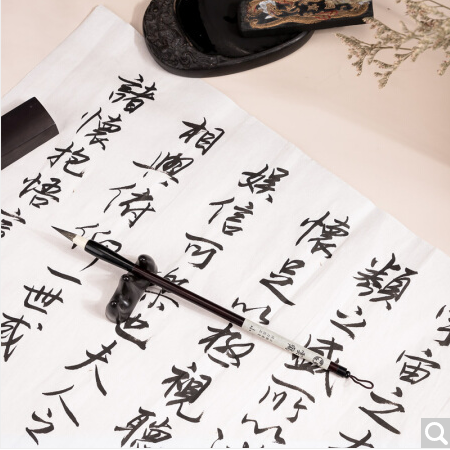 宙之
類之盛所以
懷足以極視聽
娛信可樂也夫人之
相與俯仰一世或
諸懷抱悟言